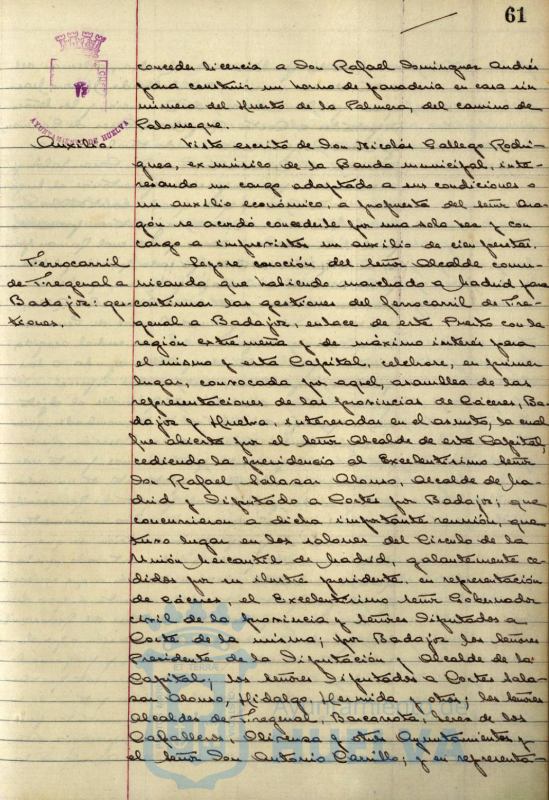 61
conceder licencia a Don Rafael Dominguez Andrés
para construir un horno de panaderia en casa sin
número del Huerto de la Palmera, del camino de
Palomeque.
Auxilio.
Visto escrito de Don Nicolás Gallego Rodri-
guez, ex músico de la Banda municipal, inte-
resando un cargo adaptado a sus condiciones o
un auxilio económico, a propuesta del señor Ara-
gón se acordó concederle por una sola vez y con
cargo a imprevistos un auxilio de cien pesetas.
Ferrocarril
de Fregenal a
Badajoz: ges-
tiones.
Leyose moción del señor Alcalde comu-
nicando que habiendo marchado a Madrid para
continuar las gestiones del ferrocarril de Fre-
genal a Badajoz, enlace de este Puerto con la
región extremeña y de máximo interés para
el mismo y esta Capital, celebrose, en primer
lugar, convocada por aquel, asamblea de las
representaciones de las provincias de Cáceres, Ba-
dajoz y Huelva, interesadas en el asunto, la cual
fue abierta por el señor Alcalde de esta Capital,
cediendo la presidencia al Excelentísimo señor
Don Rafael Salazar Alonso, Alcalde de Ma-
drid y Diputado a Cortes por Badajoz; que
concurrieron a dicha importante reunión, que
tuvo lugar en los salones del Círculo de la
Unión Mercantil de Madrid, galantemente ce-
didos por su ilustre presidente, en representación
de Cáceres, el Excelentísimo señor Gobernador
civil de la provincia y señores Diputados a
Cortes de la misma; por Badajoz los señores
Presidente de la Diputación y Alcalde de la
Capital; los señores Diputados a Cortes Sala-
zar Alonso, Hidalgo, Hermida y otros; los señores
Alcaldes de Fregenal, Barcarrota, Jerez de los
Caballeros, Olivenza y otros Ayuntamientos y
el señor Don Antonio Carrillo; y en representa-
AYUNTAMIENTO DE HUELVA
Ayuntamiento de
HUELVA